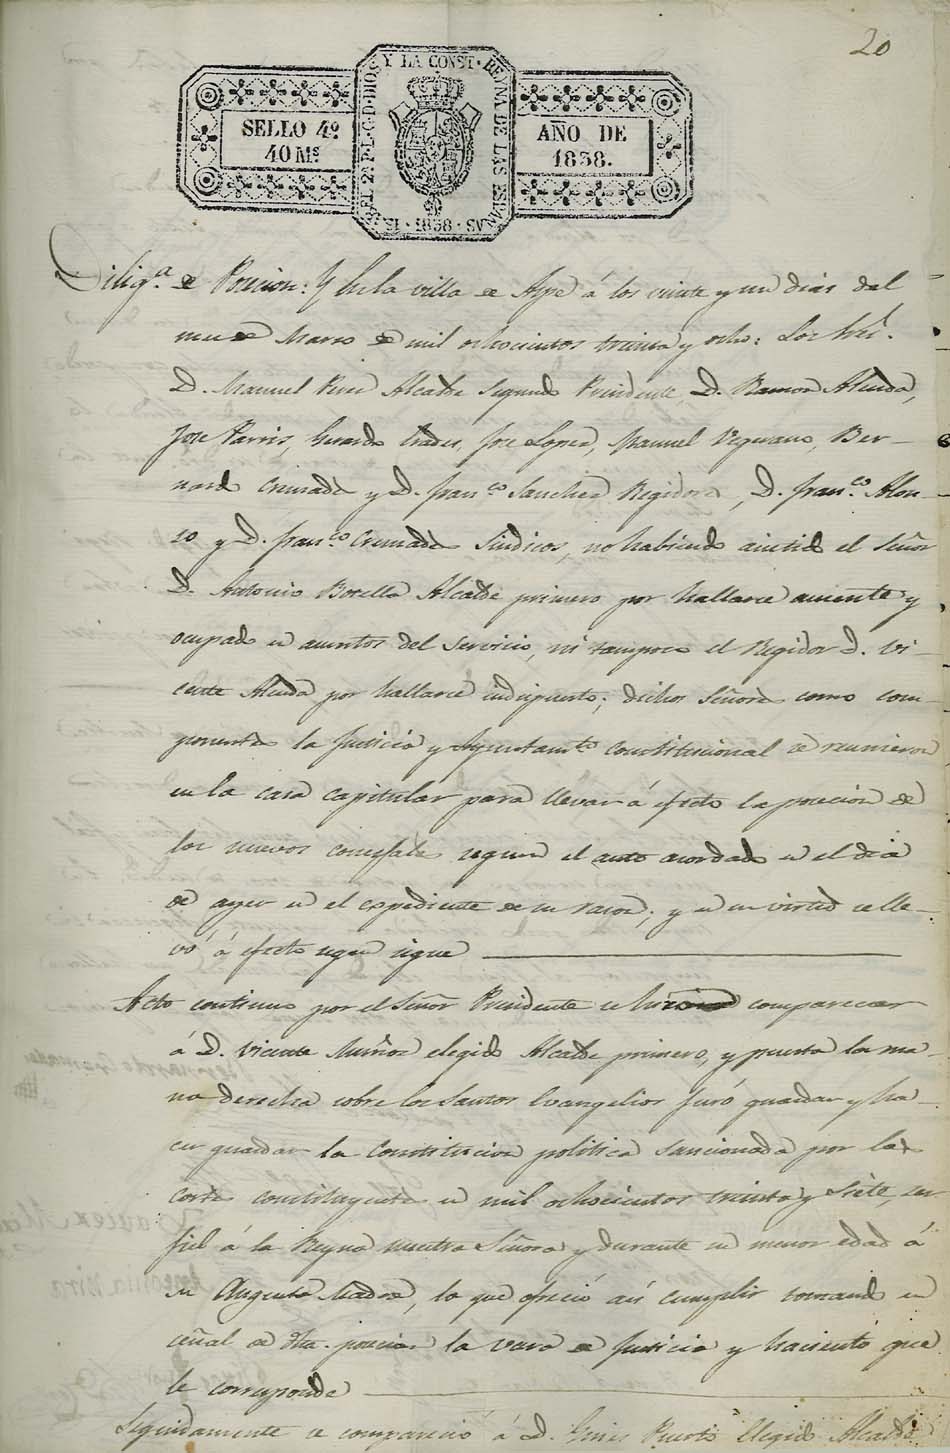 20
SELLO 4º
40 Ms
ISABEL 2ª P. L. G. D. DIOS Y LA CONST. REYNA DE LAS ESPAÑAS · 1838 ·
AÑO DE
1838.
Diligª. de Posicion: En la villa de Aspe á los veinte y un dias del
mes de Marzo de mil ochocientos treinta y ocho: Los Sres.
D. Manuel Perez Alcalde Segundo Presidente, D. Ramon Alcida,
Jose Pavia, Gerardo Prades, Jose Lopez, Manuel Vegerano, Ber-
nard Cremades y D. Franco. Sanchez Regidores, D. Franco. Alon-
zo y D. Franco. Cremades Sindicos, no habiendo asistido el Señor
D. Antonio Botella Alcalde primero por hallarse ausente y
ocupado en asuntos del Servicio, ni tampoco el Regidor D. Vi-
cente Alcida por hallarse indispuesto; dichos Señores como com-
ponentes la Justicia y Ayuntamto. Constitucional se reunieron
en la casa capitular para llevar á efecto la posecion de
los nuevos concejales segun el auto acordado en el dia
de ayer en el expediente de su razon; y en su virtud se lle-
vó á efecto segun sigue
Acto continuo por el Señor Presidente se hizo comparecer
á D. Vicente Muñoz elegido Alcalde primero, y puesta la ma-
no derecha sobre los Santos Evangelios juró guardar y ha-
cer guardar la Constitucion politica sancionada por las
cortes constituyentes en mil ochocientos treinta y siete, ser
fiel á la Reyna nuestra Señora y durante su menor edad á
su Augusta Madre, lo que ofreció asi cumplir tomando en
señal de dha. posecion la vara de Justicia y haciento que
le corresponde
Seguidamente se compareció á D. Ginés Puerto Elegido Alcalde